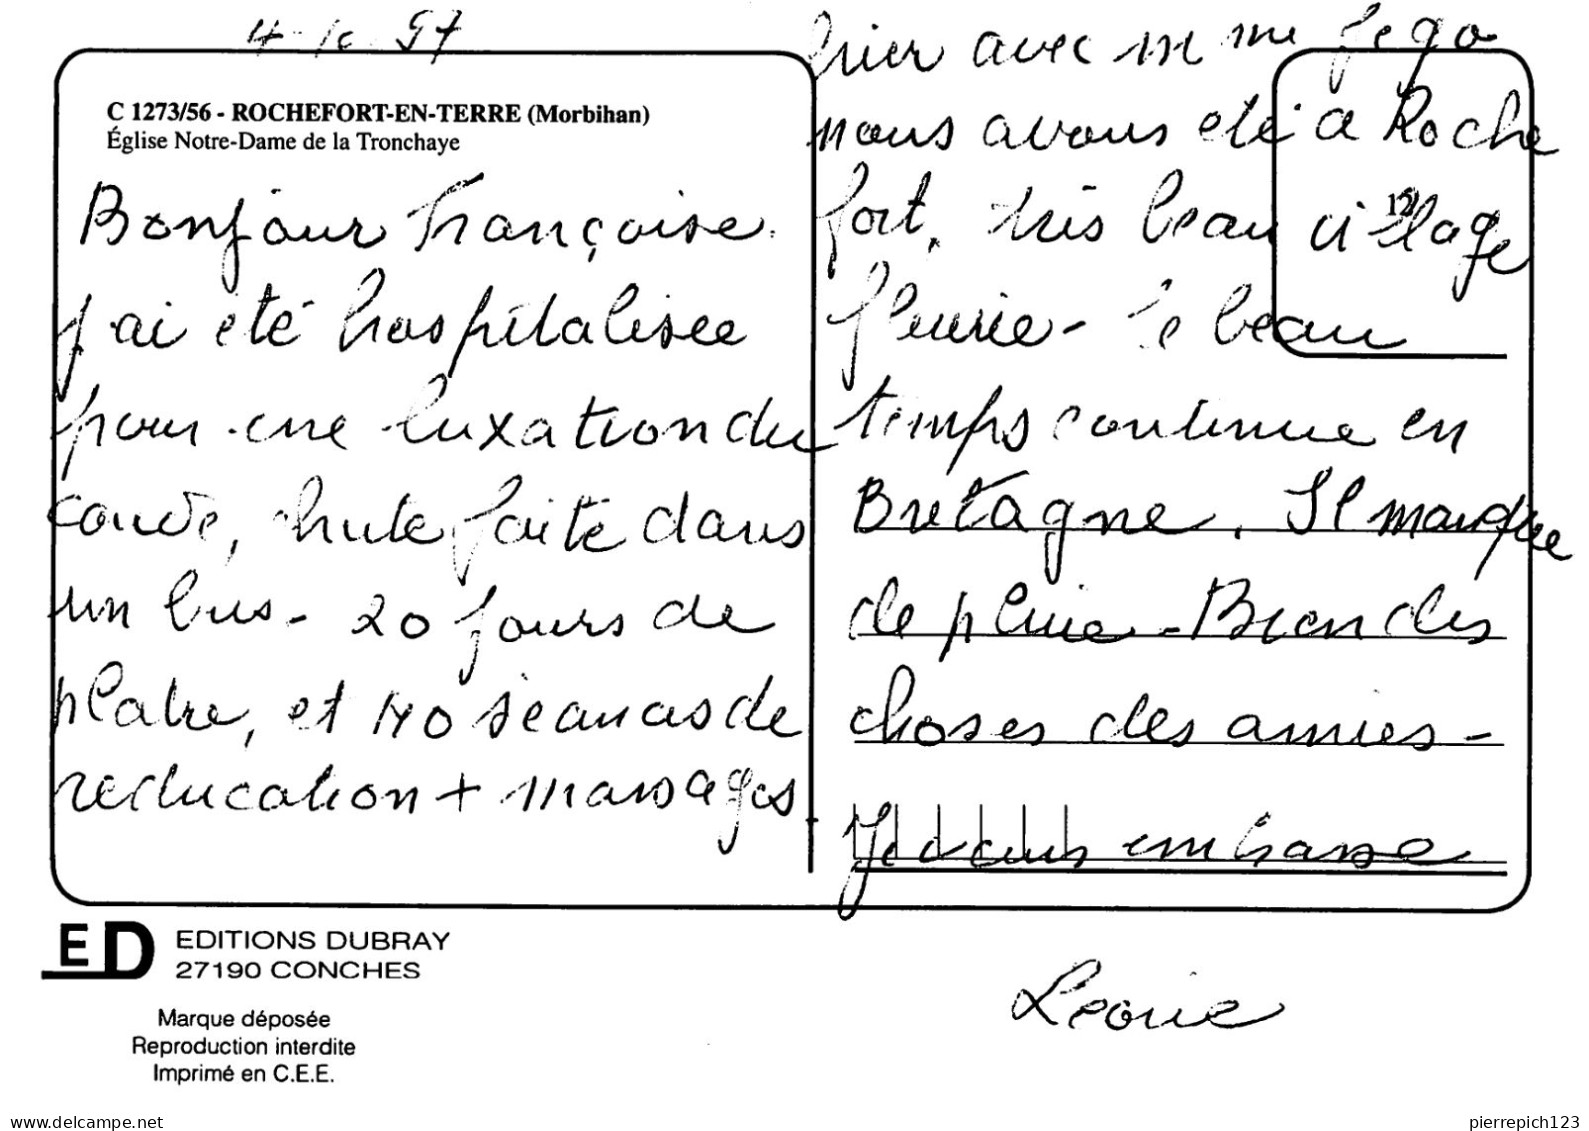 4-10 97
C 1273/56 - ROCHEFORT-EN-TERRE (Morbihan)
Église Notre-Dame de la Tronchaye
Bonjour Françoise.
j'ai été hospitalisée
pour une luxation du
coude, chute faite dans
un bus - 20 jours de
platre, et 40 séances de
reducation + massages
hier avec m me Jego
nous avons été a Roche
fort, très beau village
12
fleurie - le beau
temps continue en
Bretagne. Il manque
de pluie - Bien des
choses des amies -
Je vous embrasse
Leonie
ED
EDITIONS DUBRAY
27190 CONCHES
Marque déposée
Reproduction interdite
Imprimé en C.E.E.
www.delcampe.net
pierrepich123